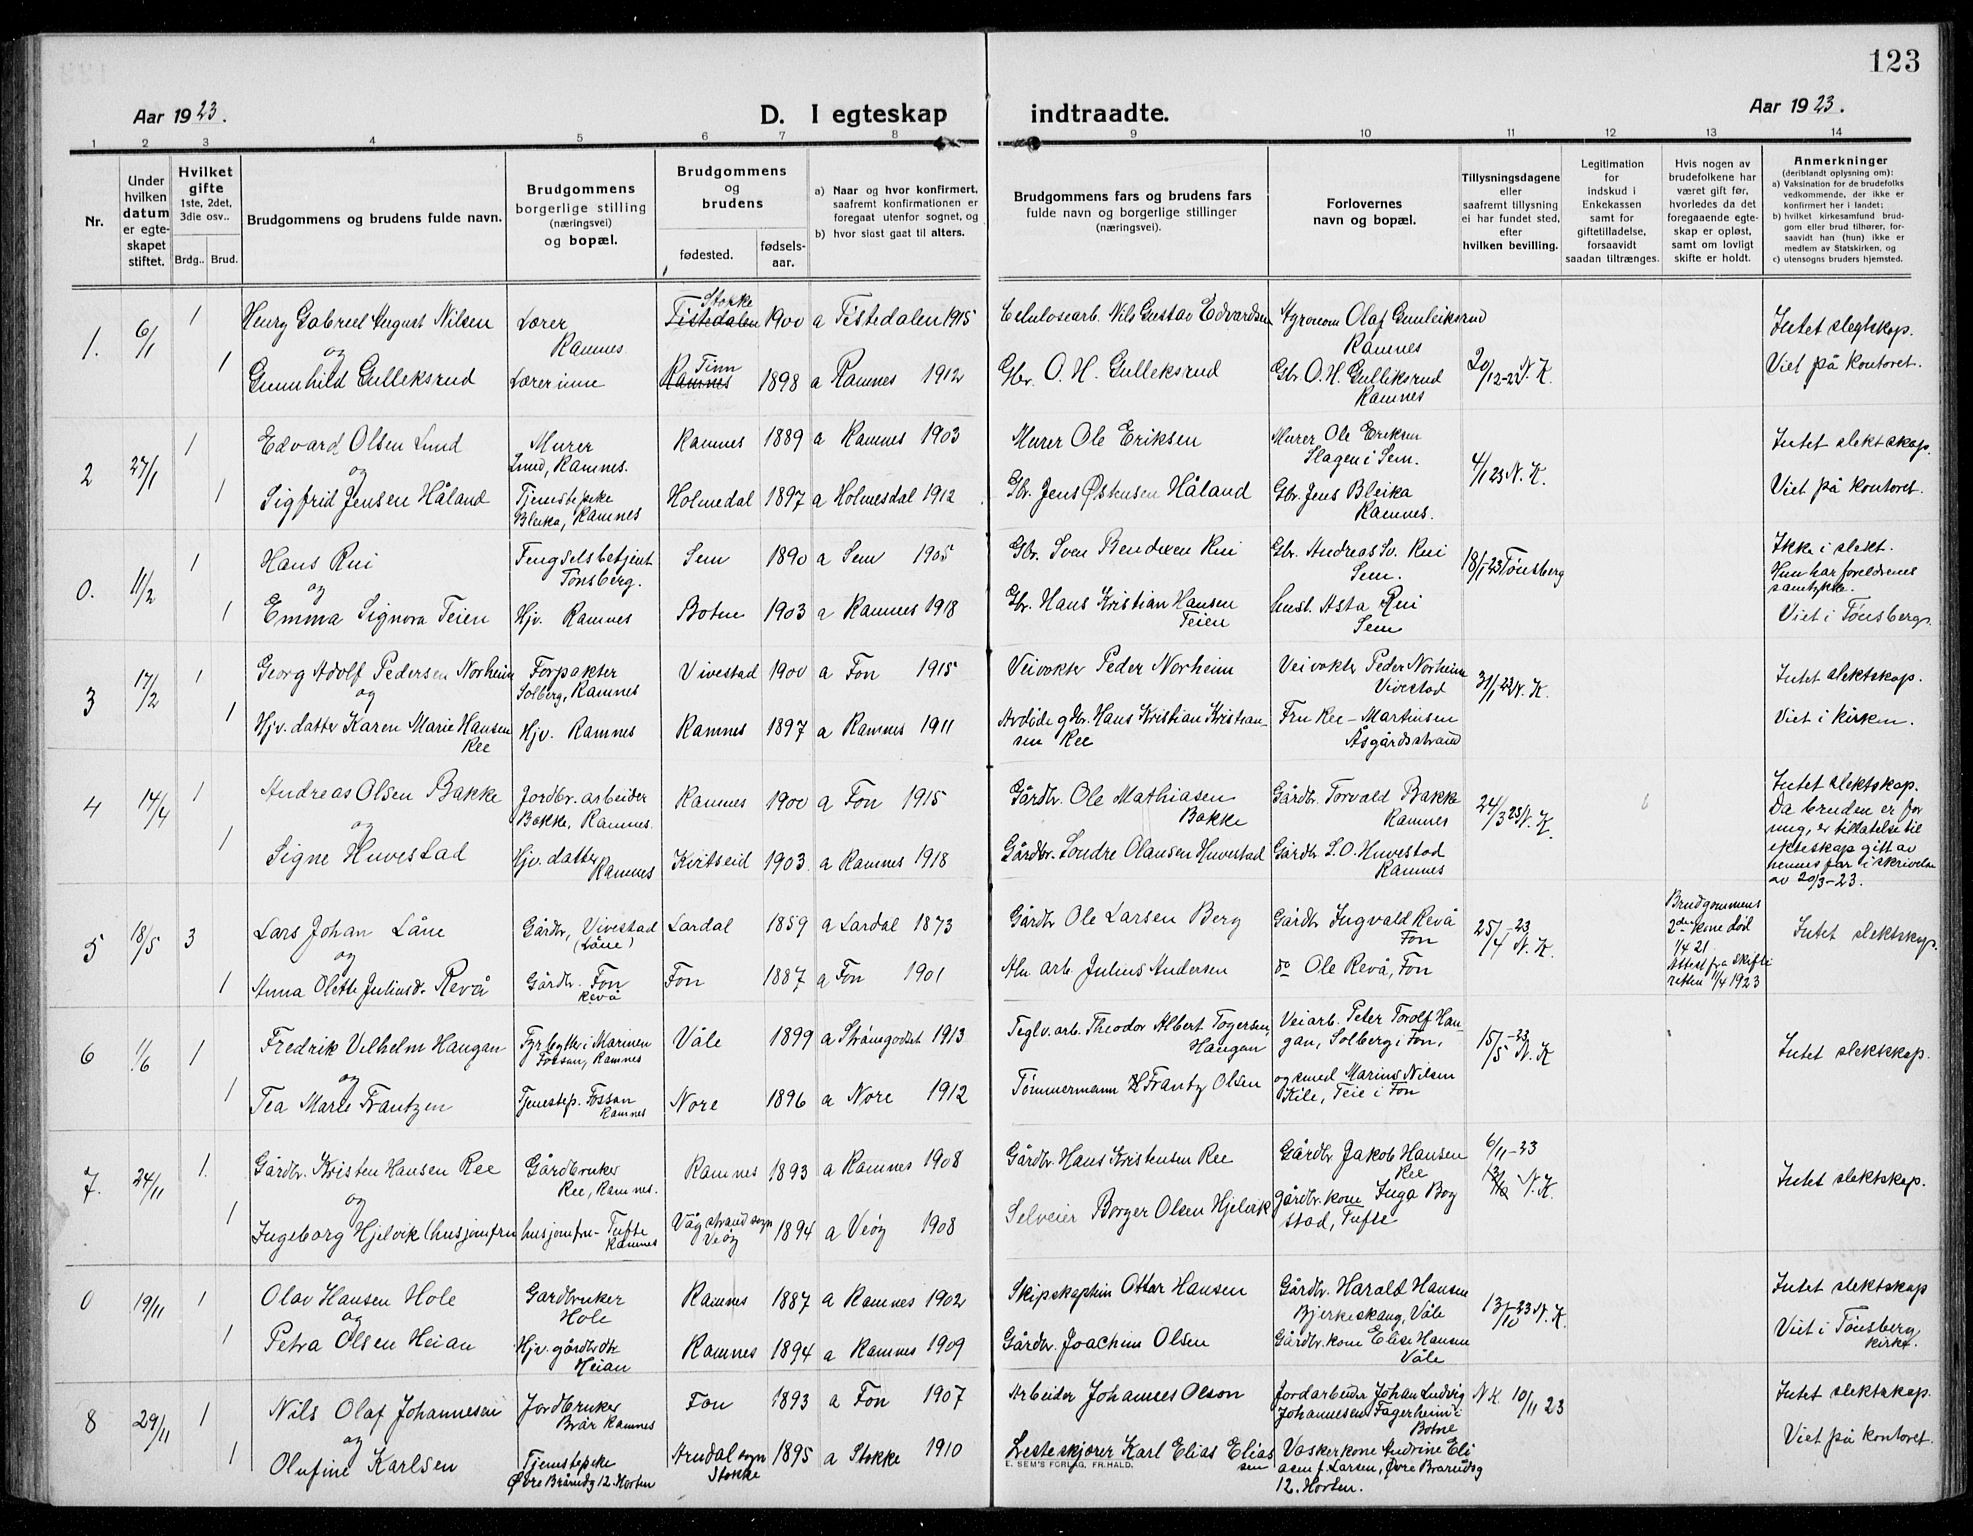 123
Aar 1923.
D. I egteskap indtraadte.
Aar 1923.
1 2 3 4 5 6 7 8 9 10 11 12 13 14
Nr.
Under hvilken datum er egte-skapet stiftet.
Hvilket gifte 1ste, 2det, 3die osv..
Brdg.. Brud.
Brudgommens og brudens fulde navn.
Brudgommens borgerlige stilling (næringsvei) og bopæl.
Brudgommens og brudens
fødested.
fødsels-aar.
a) Naar og hvor konfirmert, saafremt konfirmationen er foregaat utenfor sognet, og
b) hvor sidst gaat til alters.
Brudgommens fars og brudens fars fulde navn og borgerlige stillinger (næringsvei).
Forlovernes navn og bopæl.
Tillysningsdagene eller saafremt tillysning ei har fundet sted, efter hvilken bevilling.
Legitimation for indskud i Enkekassen samt for giftetilladelse, forsaavidt saadan tiltrænges.
Hvis nogen av brudefolkene har været gift før, hvorledes da det foregaaende egte-skap er opløst, samt om lovligt skifte er holdt.
Anmerkninger (deriblandt oplysning om):
a) Vaksination for de brudefolks vedkommende, der ikke er konfirmert her i landet;
b) hvilket kirkesamfund brud-gom eller brud tilhører, for-saavidt han (hun) ikke er medlem av Statskirken, og
c) utensogns bruders hjemsted.
1. 6/1 1 Henry Gabriel August Nilsen Lærer Ramnes Tistedalen Stokke 1900 a Tistedalen 1915 Celulosearb. Nils Gustav Edvardsen Agronom Olaf Gunleiksrud Ramnes 20/12-22 N. K. Intet slegtskap.
og
1 Gunnhild Gulleksrud Lærerinne Ramnes Tinn 1898 a Ramnes 1912 Gbr. O. H. Gulleksrud Gbr. O. H. Gulleksrud Ramnes Viet på kontoret.
2 27/1 1 Edvard Olsen Lund Murer Lund, Ramnes. Ramnes 1889 a Ramnes 1903 Murer Ole Eriksen Murer Ole Eriksen Slagen i Sem. 4/1 23 N. K. Intet slektskap.
og
1 Sigfrid Jensen Håland Tjenestepike Bleika, Ramnes Holmedal 1897 a Holmesdal 1912 Gbr. Jens Østensen Håland Gbr. Jens Bleika Ramnes. Viet på kontoret.
0. 11/2 1 Hans Rui Fengselsbetjent Tønsberg. Sem 1890 a Sem 1905 Gbr. Sven Bendixen Rui Gbr. Andreas Sv. Rui Sem. 18/1 23 Tønsberg Ikke i slekt. Hun har foreldrenes samtykke.
og
1 Emma Signora Teien Hjv. Ramnes Botne 1903 a Ramnes 1918 Gbr. Hans Kristian Hansen Teien hust. Asta Rui Sem Viet i Tønsberg.
3 17/2 1 Georg Adolf Pedersen Norheim Forpakter Solberg, Ramnes Vivestad 1900 a Fon 1915 Veivokter Peder Norheim Veivokter Peder Norheim Vivestad 31/1 23 N. K. Intet slektskap.
og
1 Hjv. datter Karen Marie Hansen Ree Hjv. Ramnes Ramnes 1897 a Ramnes 1911 Avdøde gbr. Hans Kristian Kristian-sen Ree Fru Ree - Martinsen Åsgårdsstrand Viet i kirken.
4 14/4 1 Andreas Olsen Bakke Jordbr. arbeider Bakke, Ramnes. Ramnes 1900 a Fon 1915 Gårdbr. Ole Mathiasen Bakke Gårdbr. Torvald Bakke Ramnes 24/3 23 N. K. Intet slektskap. Da bruden er for ung, er tillatelse til ekteskap gitt av hennes far i skrivelse av 20/3-23.
og
1 Signe Huvestad Hjv. datter Ramnes Kvitseid 1903 a Ramnes 1918 Gårdbr. Sondre Olausen Huvestad Gårdbr S. O. Huvestad Ramnes
5 18/5 3 Lars Johan Låne Gårdbr, Vivestad (Låne) Lardal 1859 a Lardal 1873 Gårdbr Ole Larsen Berg Gårdbr Ingvald Revå Fon 25/4-23 N. K. Brudgommens 2den kone død 1/4 21. Attest fra skifteretten 11/4 1923 Intet slektskap.
og
1 Anna Olette Juliusd. Revå Gårdbr. Fon Revå Fon 1887 a Fon 1901 Alm arb. Julius Andersen do Ole Revå, Fon
6 1/6 1 Fredrik Vilhelm Haugan Fyrbøtter i Marinen Fossan, Ramnes Våle 1899 a Strømsgodset 1913 Teglv. arb. Theodor Albert Togersen Haugan Veiarb. Peter Torolf Hau-gan, Solberg i Fon, 15/5-23 N. K Intet slektskap.
og
1 Tea Marie Frantzen Tjenestep. Fossan Ramnes Nore 1896 a Nore 1912 Tømmermann Frantz Olsen og smed Marius Nilsen Kile, Teie i Fon
7. 24/11 1. Gårdbr. Kristen Hansen Ree Gårdbruker Ree, Ramnes. Ramnes 1893 a Ramnes 1908 Gårdbr Hans Kristensen Ree Gårdbr Jakob Hansen Ree 6/11-23 N. K. Intet slektskap.
og
1 Ingeborg Hjelvik (husjomfru husjomfru - Tufte Ramnes Vågstrand sogn Veøy 1894 a Veøy 1908 Selveier Borger Olsen Hjelvik gårdbr. kone Inga Bog stad, Tufte
0 19/11 1 Olav Hansen Hole Gardbruker Hole Ramnes 1887 a Ramnes 1902 Skipskaptein Ottar Hansen Gårdbr. Harald Hansen Bjerkeskaug, Våle 13/10-23 N. K. Intet slektskap
og
1 Petra Olsen Heian Hjv. gårdbrdtr Heian Ramnes 1894 a Ramnes 1909 Gårdbr. Joachim Olsen Gårdbr. kone Elise Hansen Våle Viet i Tønsberg kirke.
8 29/11 1 Nils Olaf Johannesen Jordbruker Brår Ramnes Fon 1893 a Fon 1907 Arbeider Johannes Olson Jordarbeider Johan Ludvig Johannesen Fagerheim i Botne N. K. 10/11 23 Intet slektskap.
og
1 Olufine Karlsen Tjenestepike Øvre Brårudg 12. Horten Arndal sogn Stokke 1895 a Stokke 1910 Lesteskjærer Karl Elias Elias sen Vaskerkone Andrine Eli asen f. Larsen, Øvre Brarudsg 12. Horten. Viet på kontoret.
E. SEM'S FORLAG, FR.HALD.